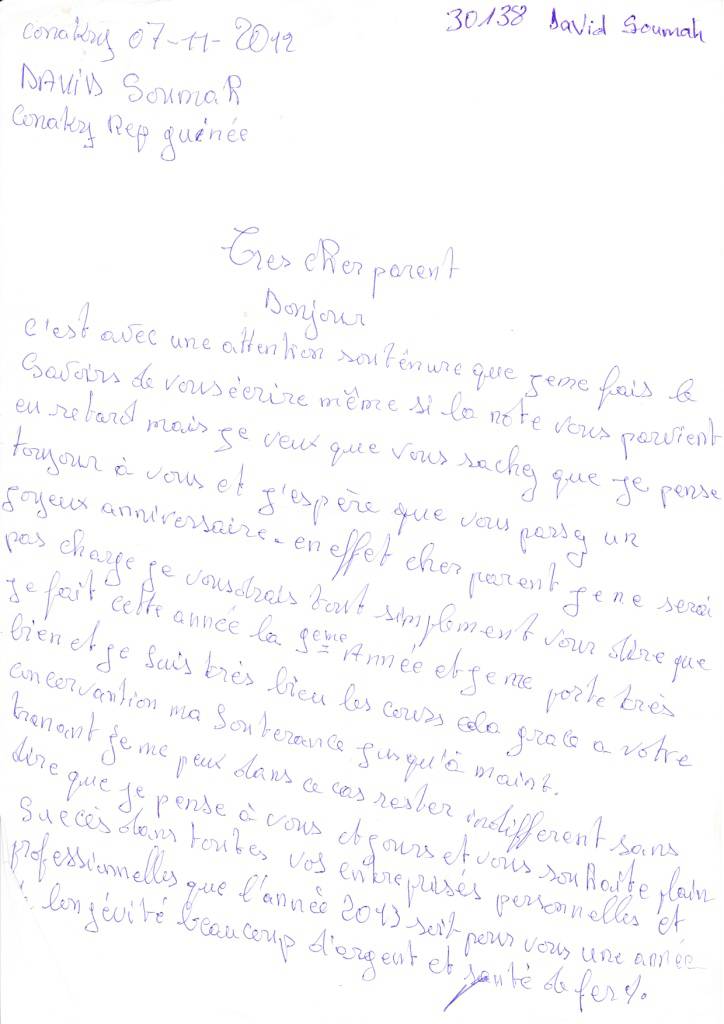 30138 David Soumah
conakry 07-11-2012
DAVID SoumaH
Conakry Rep guinée
Tres cher parent
Bonjour
C'est avec une attention souténure que jeme fais le
savoirs de vousécrire même si la note vous parvient
en retard mais je veux que vous sachez que je pense
toujour à vous et j'espère que vous passez un
joyeux anniversaire. en effet cher parent jene serai
pas charge je vousdrais tout simplement vour dire que
je fait cette année la 9eme Année et jeme porte très
bien et je suis très bien les cours cela grace a votre
concervantion ma Souterance jusqu'à maint.
tranant je me peux dans ce cas rester indifferent sans
dire que je pense à vous et vous souhaite plain
Succès dans toutes vos entreprisés personnelles et
professionnelles que l'année 2013 soit pour vous une année
longévité beaucoup d'argent et santé de fer